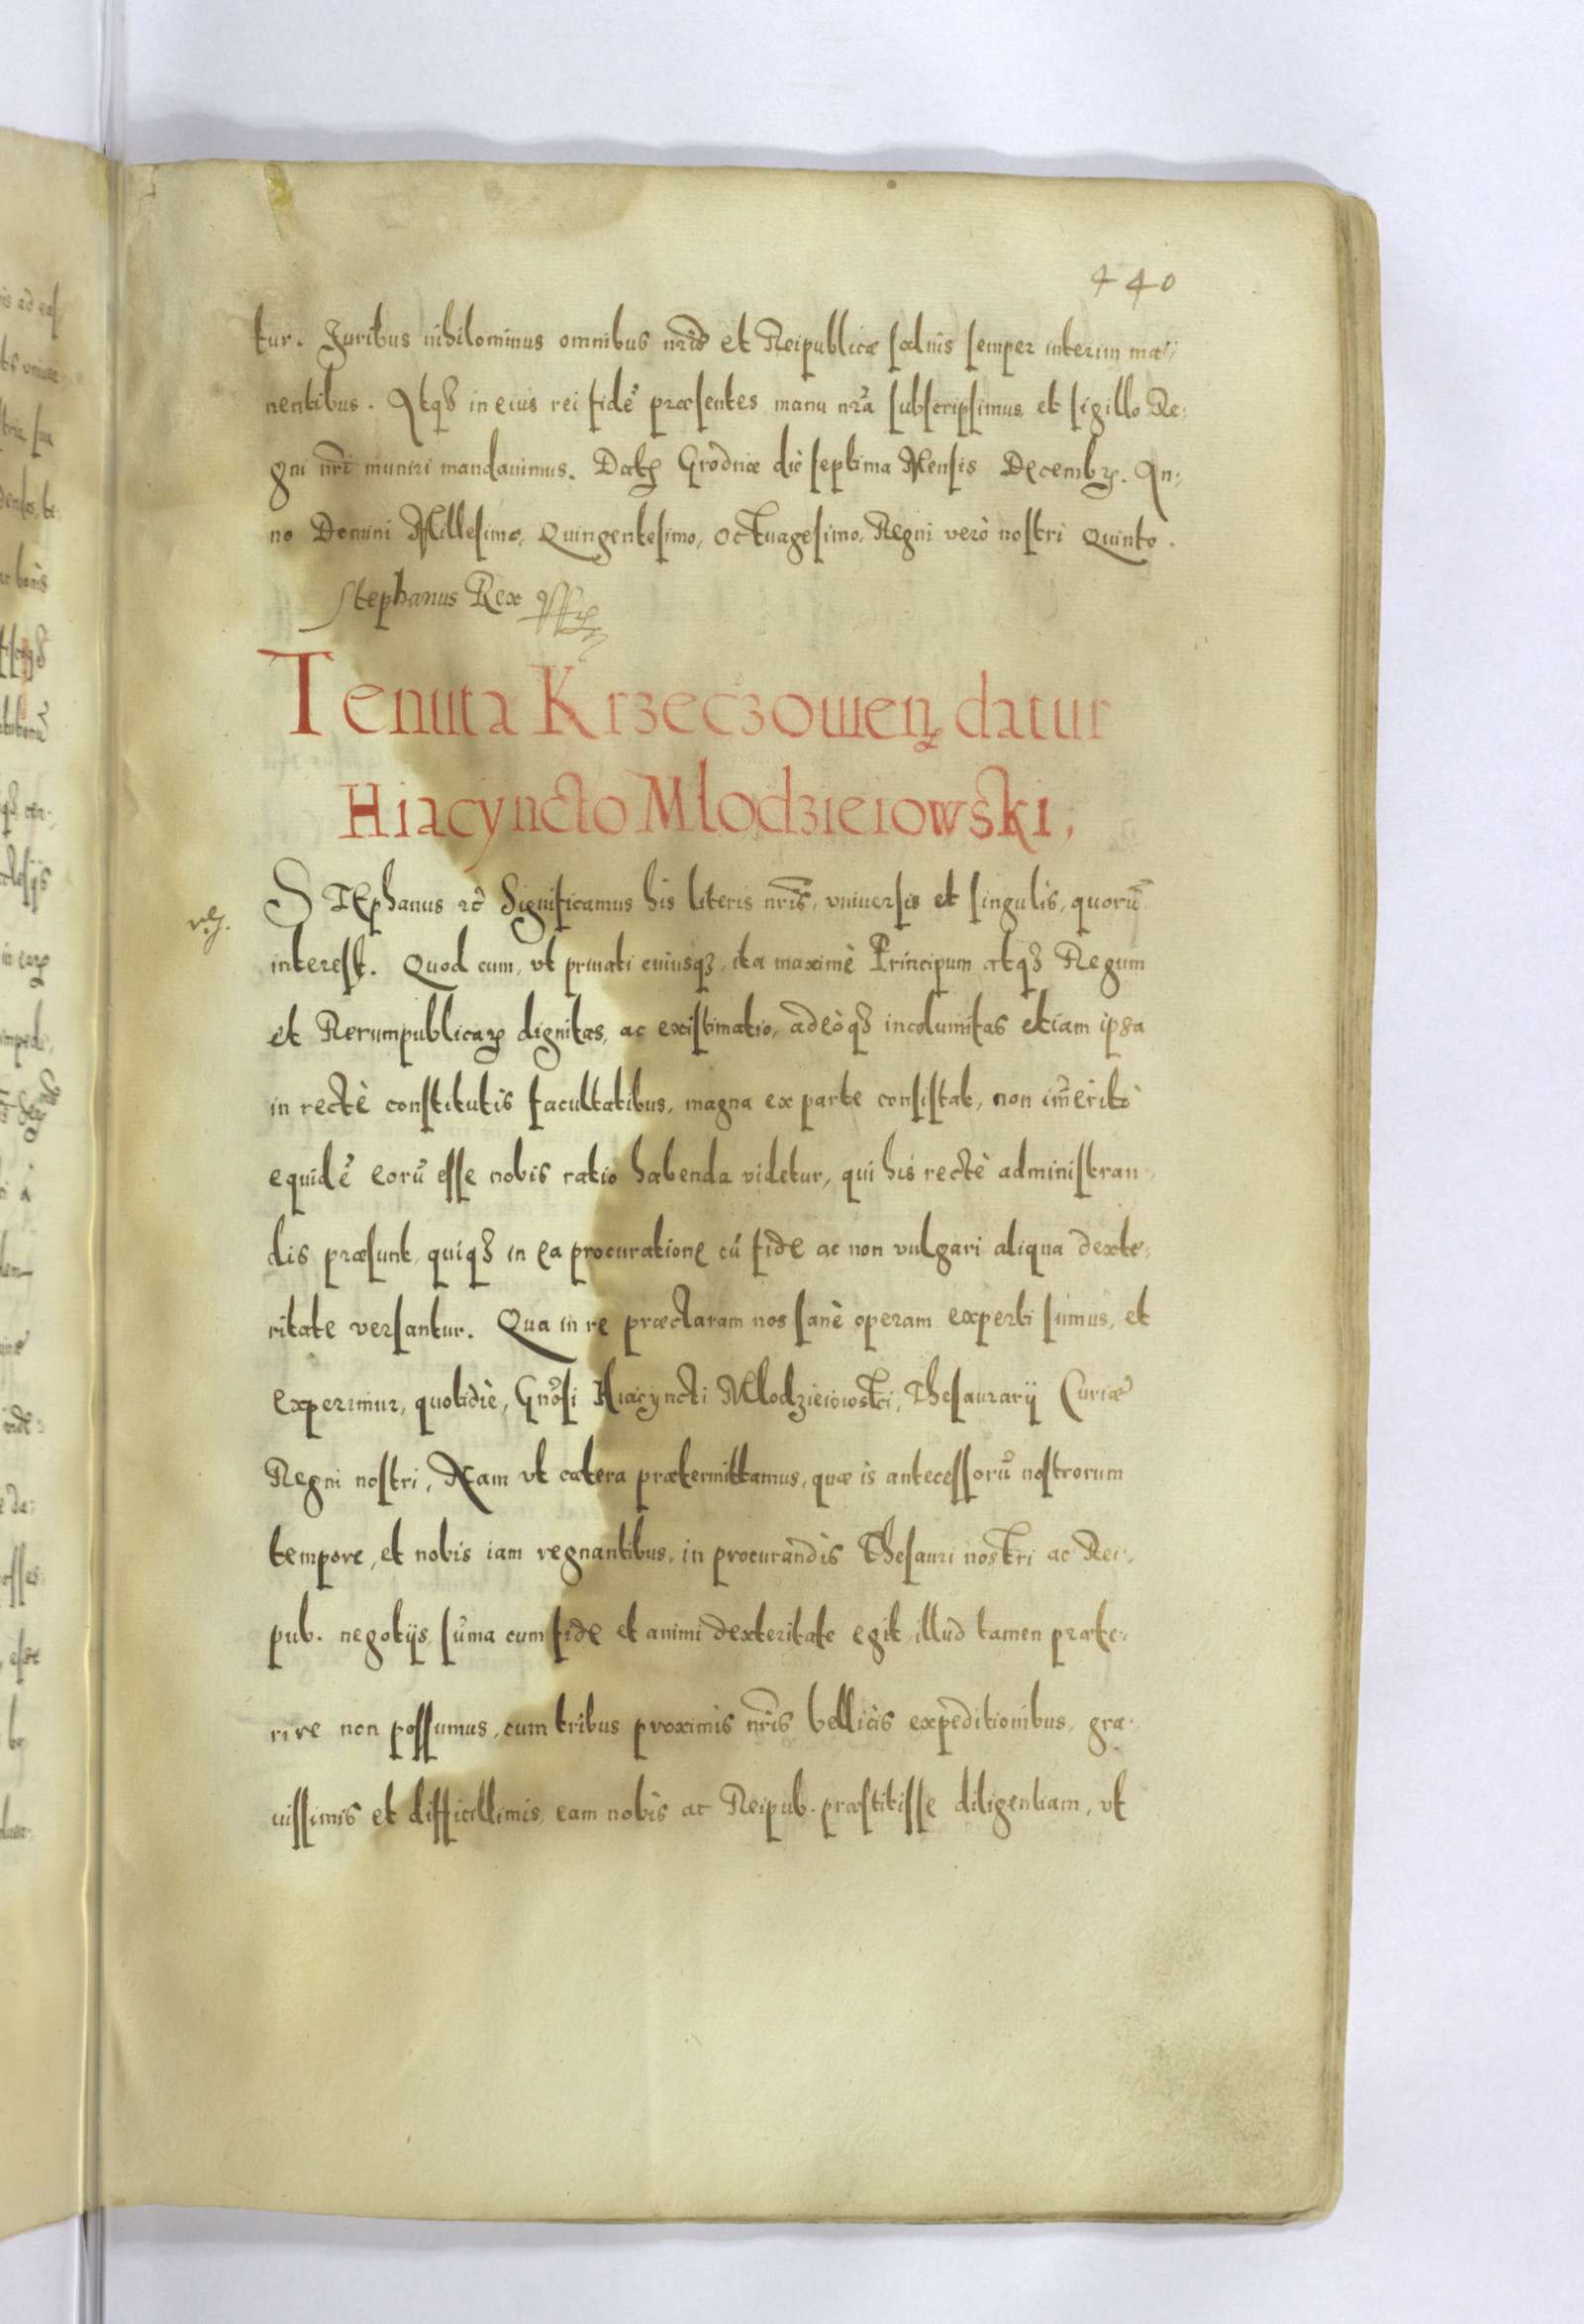 440
tur. Iuribus nihilominus omnibus nr̃is et Reipublicæ saluis semper interim ma:
nentibus. Atqȝ in eius rei fidẽ præsentes manu nr̃a subscripsimus et sigillo Re:
gni nr̃i muniri mandauimus. Datꝭ Grodnæ die septima Mensis Decembꝭ. An:
no Domini Millesimo, Quingentesimo, Octuagesimo, Regni verò nostri Quinto.
Stephanus Rex
Tenuta Krzeczowenꝭ datur
Hiacyncto Młodzieiowski,
STEphanus ꝛc̃ Significamus his literis nr̃is, vniuersis et singulis, quorũ
interest. Quod cum, vt priuati cuiusqȝ, ita maximè Principum atqȝ Regum
et Rerumpublicaꝝ dignitas, ac existimatio, adeòqȝ incolumitas etiam ipsa
in rectè constitutis facultatibus, magna ex parte consistat, non im̃eritò
equidẽ eorũ esse nobis ratio habenda videtur, qui his rectè administran:
dis præsunt, quiqȝ in ea procuratione cũ fide ac non vulgari aliqua dexte:
ritate versantur. Qua in re præclaram nos sanè operam experti sumus, et
experimur, quotidiè, Gnõsi Hiacyncti Mlodzieiowski, Thesaurarij Curiæ
Regni nostri, Nam vt cætera prætermittamus, quæ is antecessorũ nostrorum
tempore, et nobis iam regnantibus, in procurandis Thesauri nostri ac Rei:
pub. negotijs sũma cum fide et animi dexteritate egit, illud tamen præte:
rire non possumus, cum tribus proximis nr̃is bellicis expeditionibus, gra:
uissimis et difficillimis, eam nobis ac Reipub. præstitisse diligentiam, vt